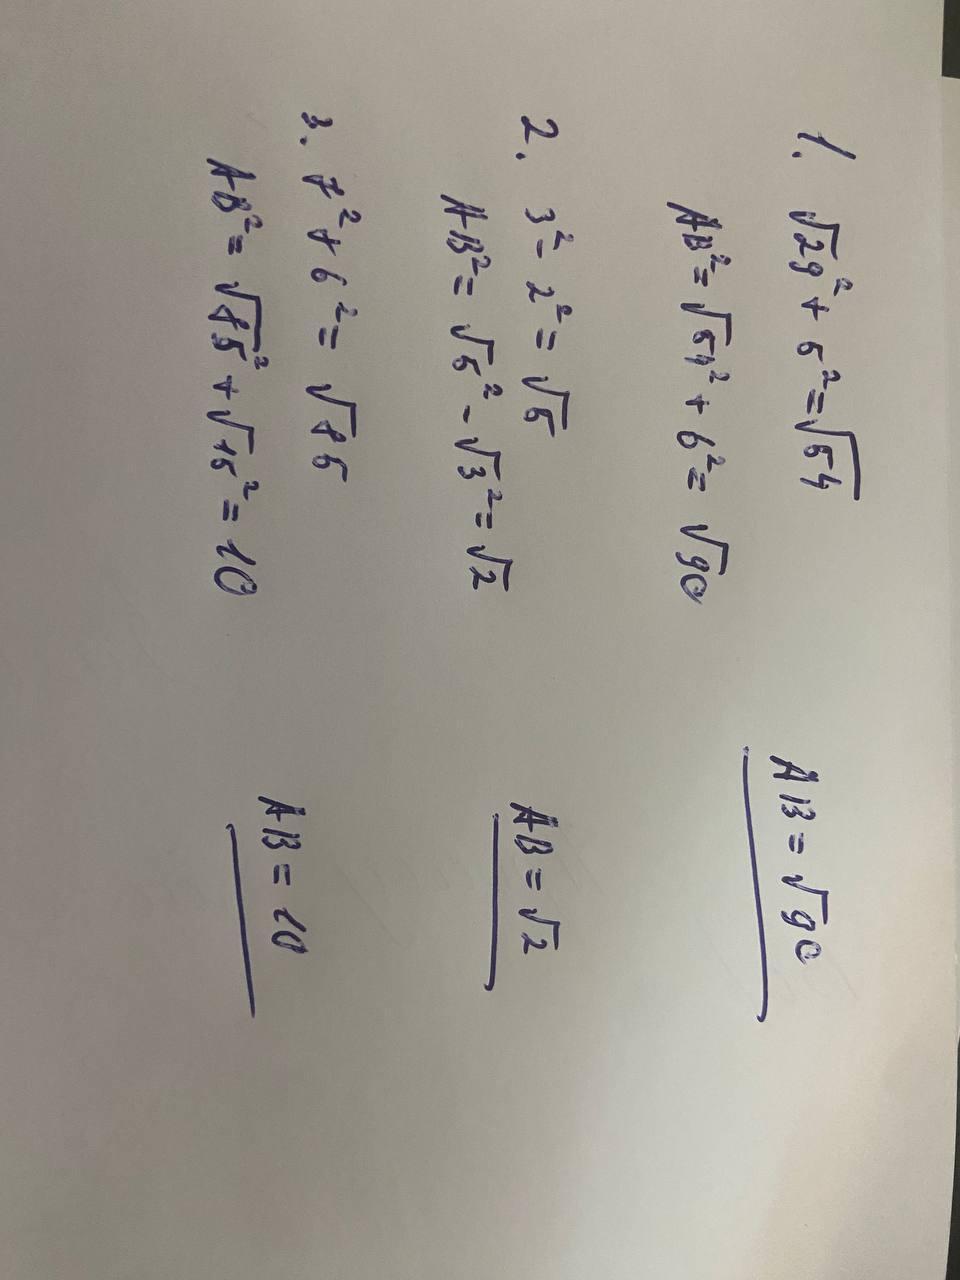 1. √29² + 5² = √54
AB² = √54² + 6² = √90
AB = √90
2. 3² - 2² = √5
AB² = √5² - √3² = √2
AB = √2
3. 7² + 6² = √85
AB² = √85² + √15² = 10
AB = 10